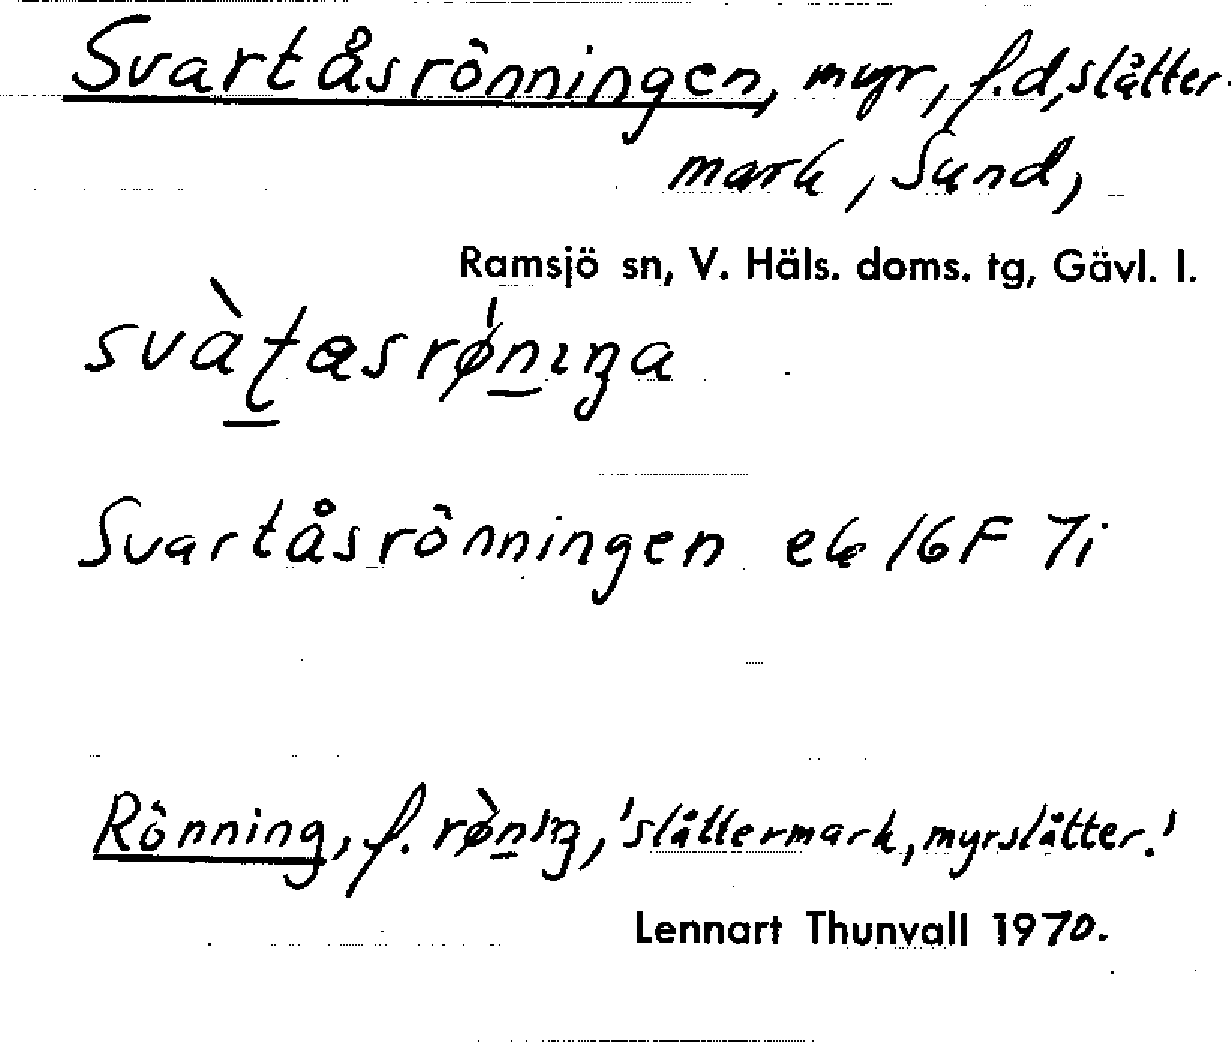 Svartåsrönningen, myr, f.d. slåtter-
mark, Sund,
Ramsjö sn, V. Häls. doms. tg, Gävl. l.
Svartåsrönningen ek 16F 7i
Rönning, f. 'slåttermark, myrslåtter.'
Lennart Thunvall 1970.